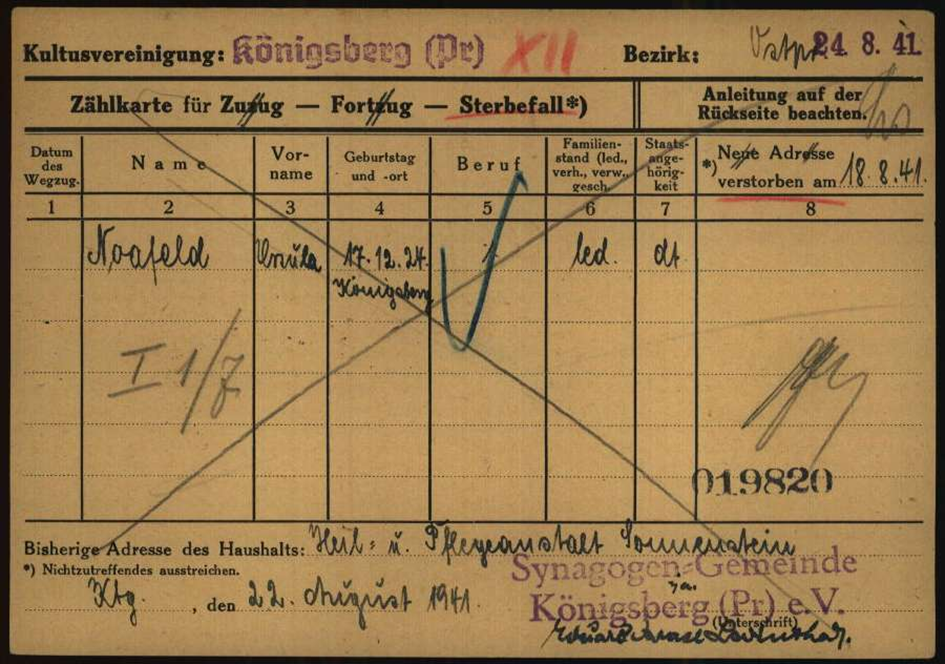 Kultusvereinigung: Königsberg (Pr) XII Bezirk: Ostpr. 24. 8. 41.
Zählkarte für Zuzug — Fortzug — Sterbefall*)
Anleitung auf der
Rückseite beachten.
Datum
des
Wegzug.
Name
Vor-
name
Geburtstag
und -ort
Beruf
Familien-
stand (led.,
verh., verw.,
gesch.
Staats-
ange-
hörig-
keit
*) Neue Adresse
verstorben am 18.8.41.
1 2 3 4 5 6 7 8
Noafeld Ursula 17.12.24. led. dt
Königsberg
I 1/7
019820
Bisherige Adresse des Haushalts: Heil- u. Pflegeanstalt Sonnenstein
*) Nichtzutreffendes ausstreichen.
Synagogen-Gemeinde
Kbg. , den 22. August 1941.
Königsberg (Pr) e.V.
(Unterschrift)